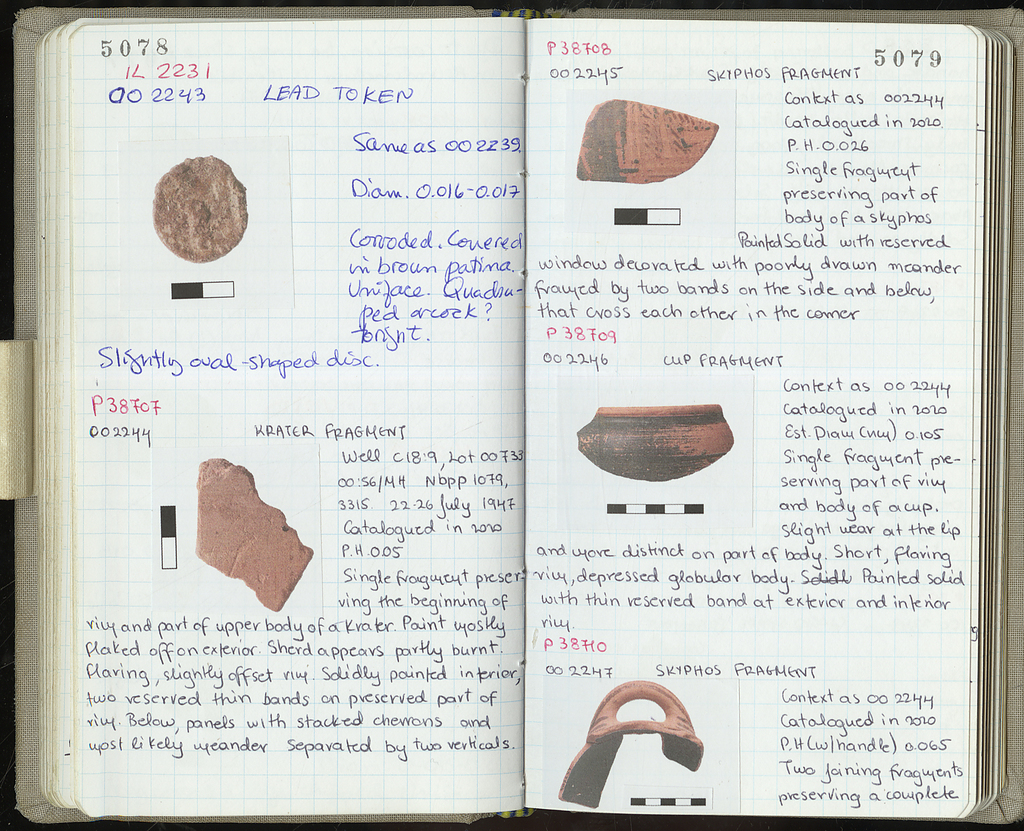 5078
IL 2231
002243 LEAD TOKEN
Same as 002239.
Diam. 0.016-0.017
Corroded. Covered
in brown patina.
Uniface. Quadru-
ped or cock?
to right.
Slightly oval-shaped disc.
P38707
002244 KRATER FRAGMENT
Well C18:9, Lot 00733
00:56/MH Nbpp 1079,
3315. 22-26 July 1947
Catalogued in 2020
P.H. 0.05
Single fragment preser-
ving the beginning of
rim and part of upper body of a krater. Paint mostly
flaked off on exterior. Sherd appears partly burnt.
Flaring, slightly offset rim. Solidly painted interior,
two reserved thin bands on preserved part of
rim. Below, panels with stacked chevrons and
most likely meander separated by two verticals.
P38708
5079
002245 SKYPHOS FRAGMENT
Context as 002244
Catalogued in 2020.
P.H. 0.026
Single fragment
preserving part of
body of a skyphos
Painted Solid with reserved
window decorated with poorly drawn meander
framed by two bands on the side and below,
that cross each other in the corner
P38709
002246 CUP FRAGMENT
Context as 002244
Catalogued in 2020
Est. Diam (rim) 0.105
Single fragment pre-
serving part of rim
and body of a cup.
Slight wear at the lip
and more distinct on part of body. Short, flaring
rim, depressed globular body. Painted solid
with thin reserved band at exterior and interior
rim.
P38710
002247 SKYPHOS FRAGMENT
Context as 002244
Catalogued in 2020
P.H (w/handle) 0.065
Two joining fragments
preserving a complete